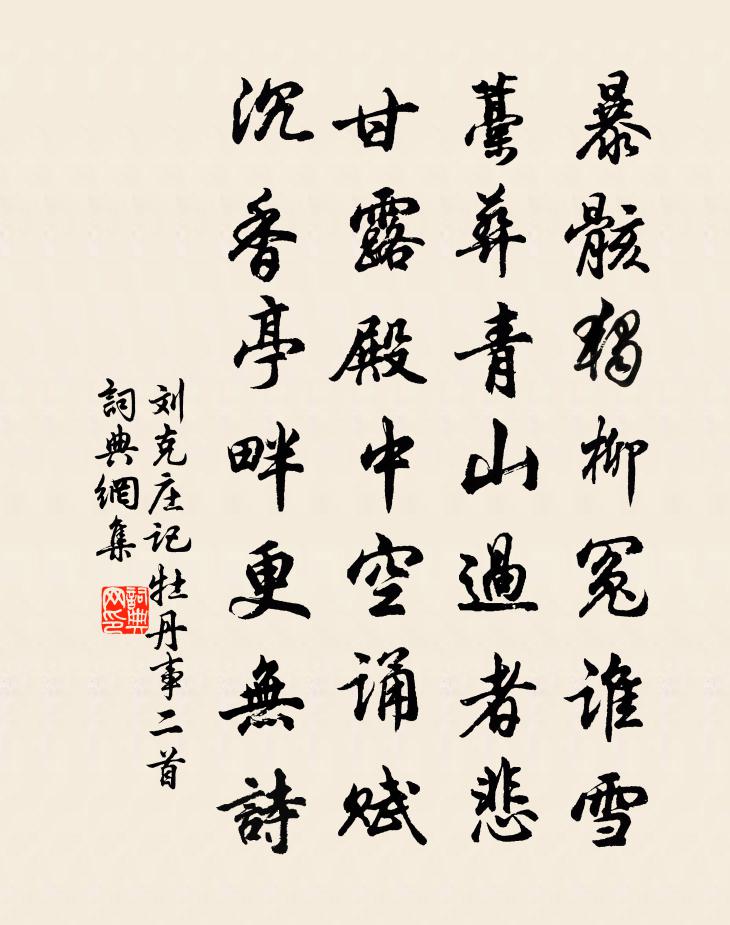 暴骸獨柳冤誰雪
藁葬青山過者悲
甘露殿中空誦賦
沉香亭畔更無詩
刘克庄记牡丹事二首
詞典網集
詞典网印